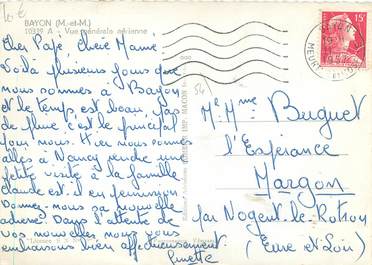 10 €
BAYON (M.-et-M.)
10319 A - Vue générale aérienne
Cher Papé, Chère Mamie
Voilà plusieurs jours que
nous sommes à Bayon
et le temps est beau, pas
de pluie c'est le principal
pour nous. Hier nous sommes
allés à Nancy rendre une
petite visite à la famille
claude est il en permission
Donnez-nous sa nouvelle
adresse. Dans l'attente de
vos nouvelles nous vous
embrassons bien affectueusement
Ginette
15F
Mr Mme Buguet
l'Espérance
Margon
par Nogent-le-Rotrou
(Eure et Loir)